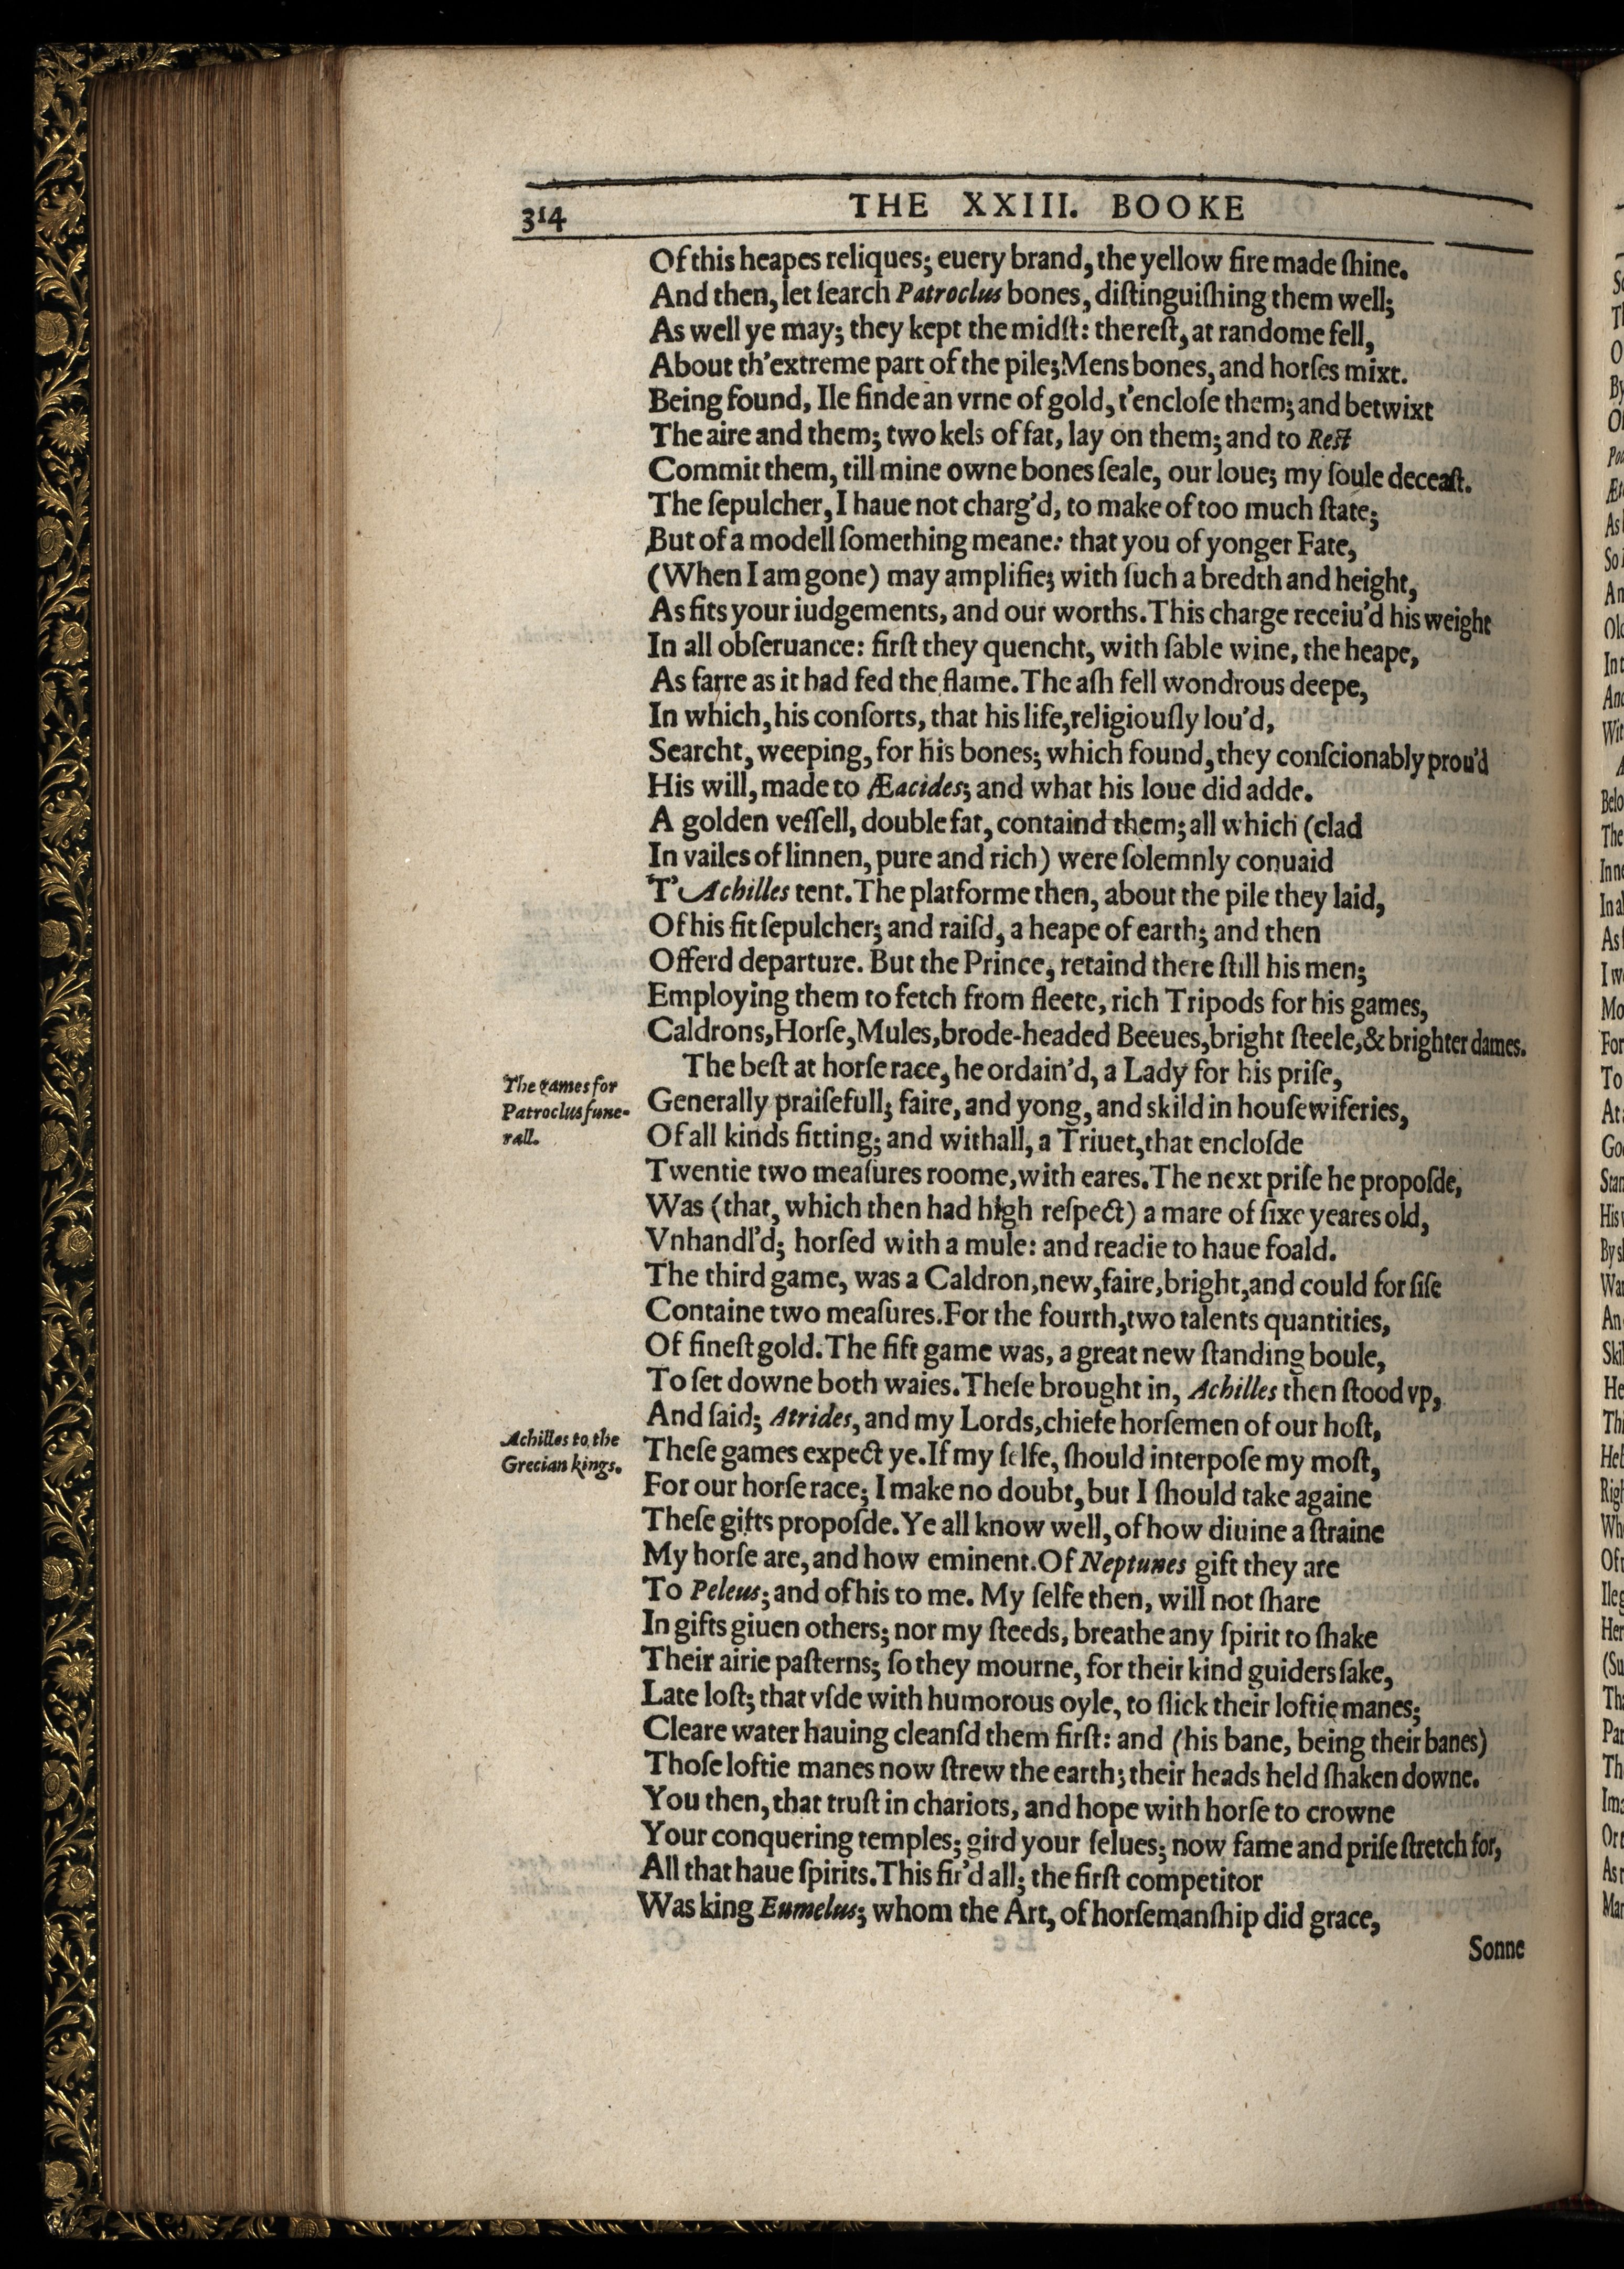 314
THE XXIII. BOOKE
Of this heapes reliques; euery brand, the yellow fire made ſhine.
And then, let ſearch Patroclus bones, diſtinguiſhing them well;
As well ye may; they kept the midſt: the reſt, at randome fell,
About th'extreme part of the pile; Mens bones, and horſes mixt.
Being found, Ile finde an vrne of gold, t'encloſe them; and betwixt
The aire and them; two kels of fat, lay on them; and to Reſt
Commit them, till mine owne bones ſeale, our loue; my ſoule deceaſt.
The ſepulcher, I haue not charg'd, to make of too much ſtate;
But of a modell ſomething meane: that you of yonger Fate,
(When I am gone) may amplifie; with ſuch a bredth and height,
As fits your iudgements, and our worths. This charge receiu'd his weight
In all obſeruance: firſt they quencht, with ſable wine, the heape,
As farre as it had fed the flame. The aſh fell wondrous deepe,
In which, his conſorts, that his life, religiouſly lou'd,
Searcht, weeping, for his bones; which found, they conſcionably prou'd
His will, made to Æacides; and what his loue did adde.
A golden veſſell, double fat, containd them; all which (clad
In vailes of linnen, pure and rich) were ſolemnly conuaid
T' Achilles tent. The platforme then, about the pile they laid,
Of his fit ſepulcher; and raiſd, a heape of earth; and then
Offerd departure. But the Prince, retaind there ſtill his men;
Employing them to fetch from fleete, rich Tripods for his games,
Caldrons, Horſe, Mules, brode-headed Beeues, bright ſteele, & brighter dames.
The beſt at horſe race, he ordain'd, a Lady for his priſe,
The games for
Patroclus fune-
rall.
Generally praiſefull; faire, and yong, and skild in houſewiferies,
Of all kinds fitting; and withall, a Triuet, that encloſde
Twentie two meaſures roome, with eares. The next priſe he propoſde,
Was (that, which then had high reſpect) a mare of ſixe yeares old,
Vnhandl'd; horſed with a mule: and readie to haue foald.
The third game, was a Caldron, new, faire, bright, and could for ſiſe
Containe two meaſures. For the fourth, two talents quantities,
Of fineſt gold. The fift game was, a great new ſtanding boule,
To ſet downe both waies. Theſe brought in, Achilles then ſtood vp,
And ſaid; Atrides, and my Lords, chiefe horſemen of our hoſt,
Achilles to the
Grecian kings.
Theſe games expect ye. If my ſelfe, ſhould interpoſe my moſt,
For our horſe race; I make no doubt, but I ſhould take againe
Theſe gifts propoſde. Ye all know well, of how diuine a ſtraine
My horſe are, and how eminent. Of Neptunes gift they are
To Peleus; and of his to me. My ſelfe then, will not ſhare
In gifts giuen others; nor my ſteeds, breathe any ſpirit to ſhake
Their airie paſterns; ſo they mourne, for their kind guiders ſake,
Late loſt; that vſde with humorous oyle, to ſlick their loftie manes;
Cleare water hauing cleanſd them firſt: and (his bane, being their banes)
Thoſe loftie manes now ſtrew the earth; their heads held ſhaken downe.
You then, that truſt in chariots, and hope with horſe to crowne
Your conquering temples; gird your ſelues; now fame and priſe ſtretch for,
All that haue ſpirits. This fir'd all; the firſt competitor
Was king Eumelus; whom the Art, of horſemanſhip did grace,
Sonne